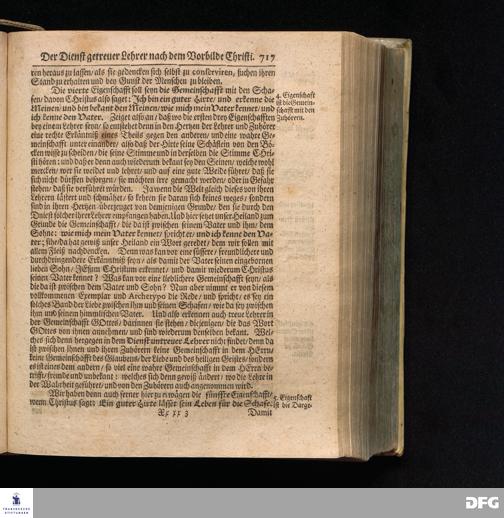 Der Dienst getreuer Lehrer nach dem Vorbilde Christi. 717
ren heraus zu lassen/ als sie gedencken sich selbst zu conserviren, suchen ihren
Stand zu erhalten und bey Gunst der Menschen zu bleiben.
Die vierte Eigenschafft soll seyn die Gemeinschafft mit den Scha-
fen/ davon Christus also saget: Ich bin ein guter Hirte/ und erkenne die
Meinen/ und bin bekant den Meinen/ wie mich mein Vater kennet/ und
ich kenne den Vater. Zeiget also an/ daß wo die ersten drey Eigenschafften
bey einem Lehrer seyn/ so entstehet denn in den Hertzen der Lehrer und Zuhörer
eine rechte Erkäntniß eines Theils gegen den anderen/ und eine wahre Ge-
meinschafft unter einander/ also daß der Hirte seine Schäflein von den Bö-
cken weiß zu scheiden/ die seine Stimme und in derselben die Stimme Chri-
sti hören: und daß er denn auch wiederum bekant sey den Seinen/ welche wohl
mercken/ wer sie weidet und lehret/ und auf eine gute Weide führet/ daß sie
sich nicht dürffen besorgen/ sie möchten irre gemacht werden/ oder in Gefahr
stehen/ daß sie verführet würden. Ja wenn die Welt gleich dieses von ihren
Lehrern lästert und schmähet/ so kehren sie daran sich keines weges/ sondern
sind in ihren Hertzen überzeuget von demjenigen Grunde/ den sie durch den
Dienst solcher ihrer Lehrer empfangen haben. Und hier setzet unser Heiland zum
Grunde die Gemeinschafft/ die da ist zwischen seinem Vater und ihm/ dem
Sohne: wie mich mein Vater kennet/ spricht er/ und ich kenne den Va-
ter; sihe/ da hat gewiß unser Heiland ein Wort geredet/ dem wir sollen mit
allem Fleiß nachdencken. Denn was kan vor eine süssere/ freundlichere und
durchdringendere Erkäntniß seyn/ als damit der Vater seinen eingebornen
lieben Sohn/ JEsum Christum erkennet/ und damit wiederum Christus
seinen Vater kennet? Was kan vor eine lieblichere Gemeinschafft seyn/ als
die da ist zwischen dem Vater und Sohn? Nun aber nimmt er von diesem
vollkommenen Exemplar und Archetypo die Rede/ und spricht/ es sey ein
solches Band der Liebe zwischen ihm und seinen Schafen/ wie da sey zwischen
ihm und seinem himmlischen Vater. Und also erkennen auch treue Lehrer in
der Gemeinschafft GOttes/ darinnen sie stehen/ diejenigen/ die das Wort
GOttes von ihnen annehmen/ und sind wiederum denselben bekant. Wel-
ches sich denn hergegen in dem Dienst untreuer Lehrer nicht findet/ denn da
ist zwischen ihnen und ihren Zuhörern keine Gemeinschafft in dem HErrn/
keine Gemeinschafft des Glaubens/ der Liebe und des heiligen Geistes/ sondern
es ist eines dem andern/ so viel eine wahre Gemeinschafft in dem HErrn be-
trifft/ fremde und unbekant: welches sich denn gewiß ändert/ wo die Lehre in
der Wahrheit geführet/ und von den Zuhörern auch angenommen wird.
Wir haben denn auch ferner hier zu erwägen die fünffte Eigenschafft/
wenn Christus saget: Ein guter Hirte lässet sein Leben für die Schafe.
Xx xx 3 Damit
4. Eigenschaft
ist die Gemein-
schafft mit den
Zuhörern.
5. Eigenschaft
ist die Darge-
FRANCKESCHE
STIFTUNGEN
DFG